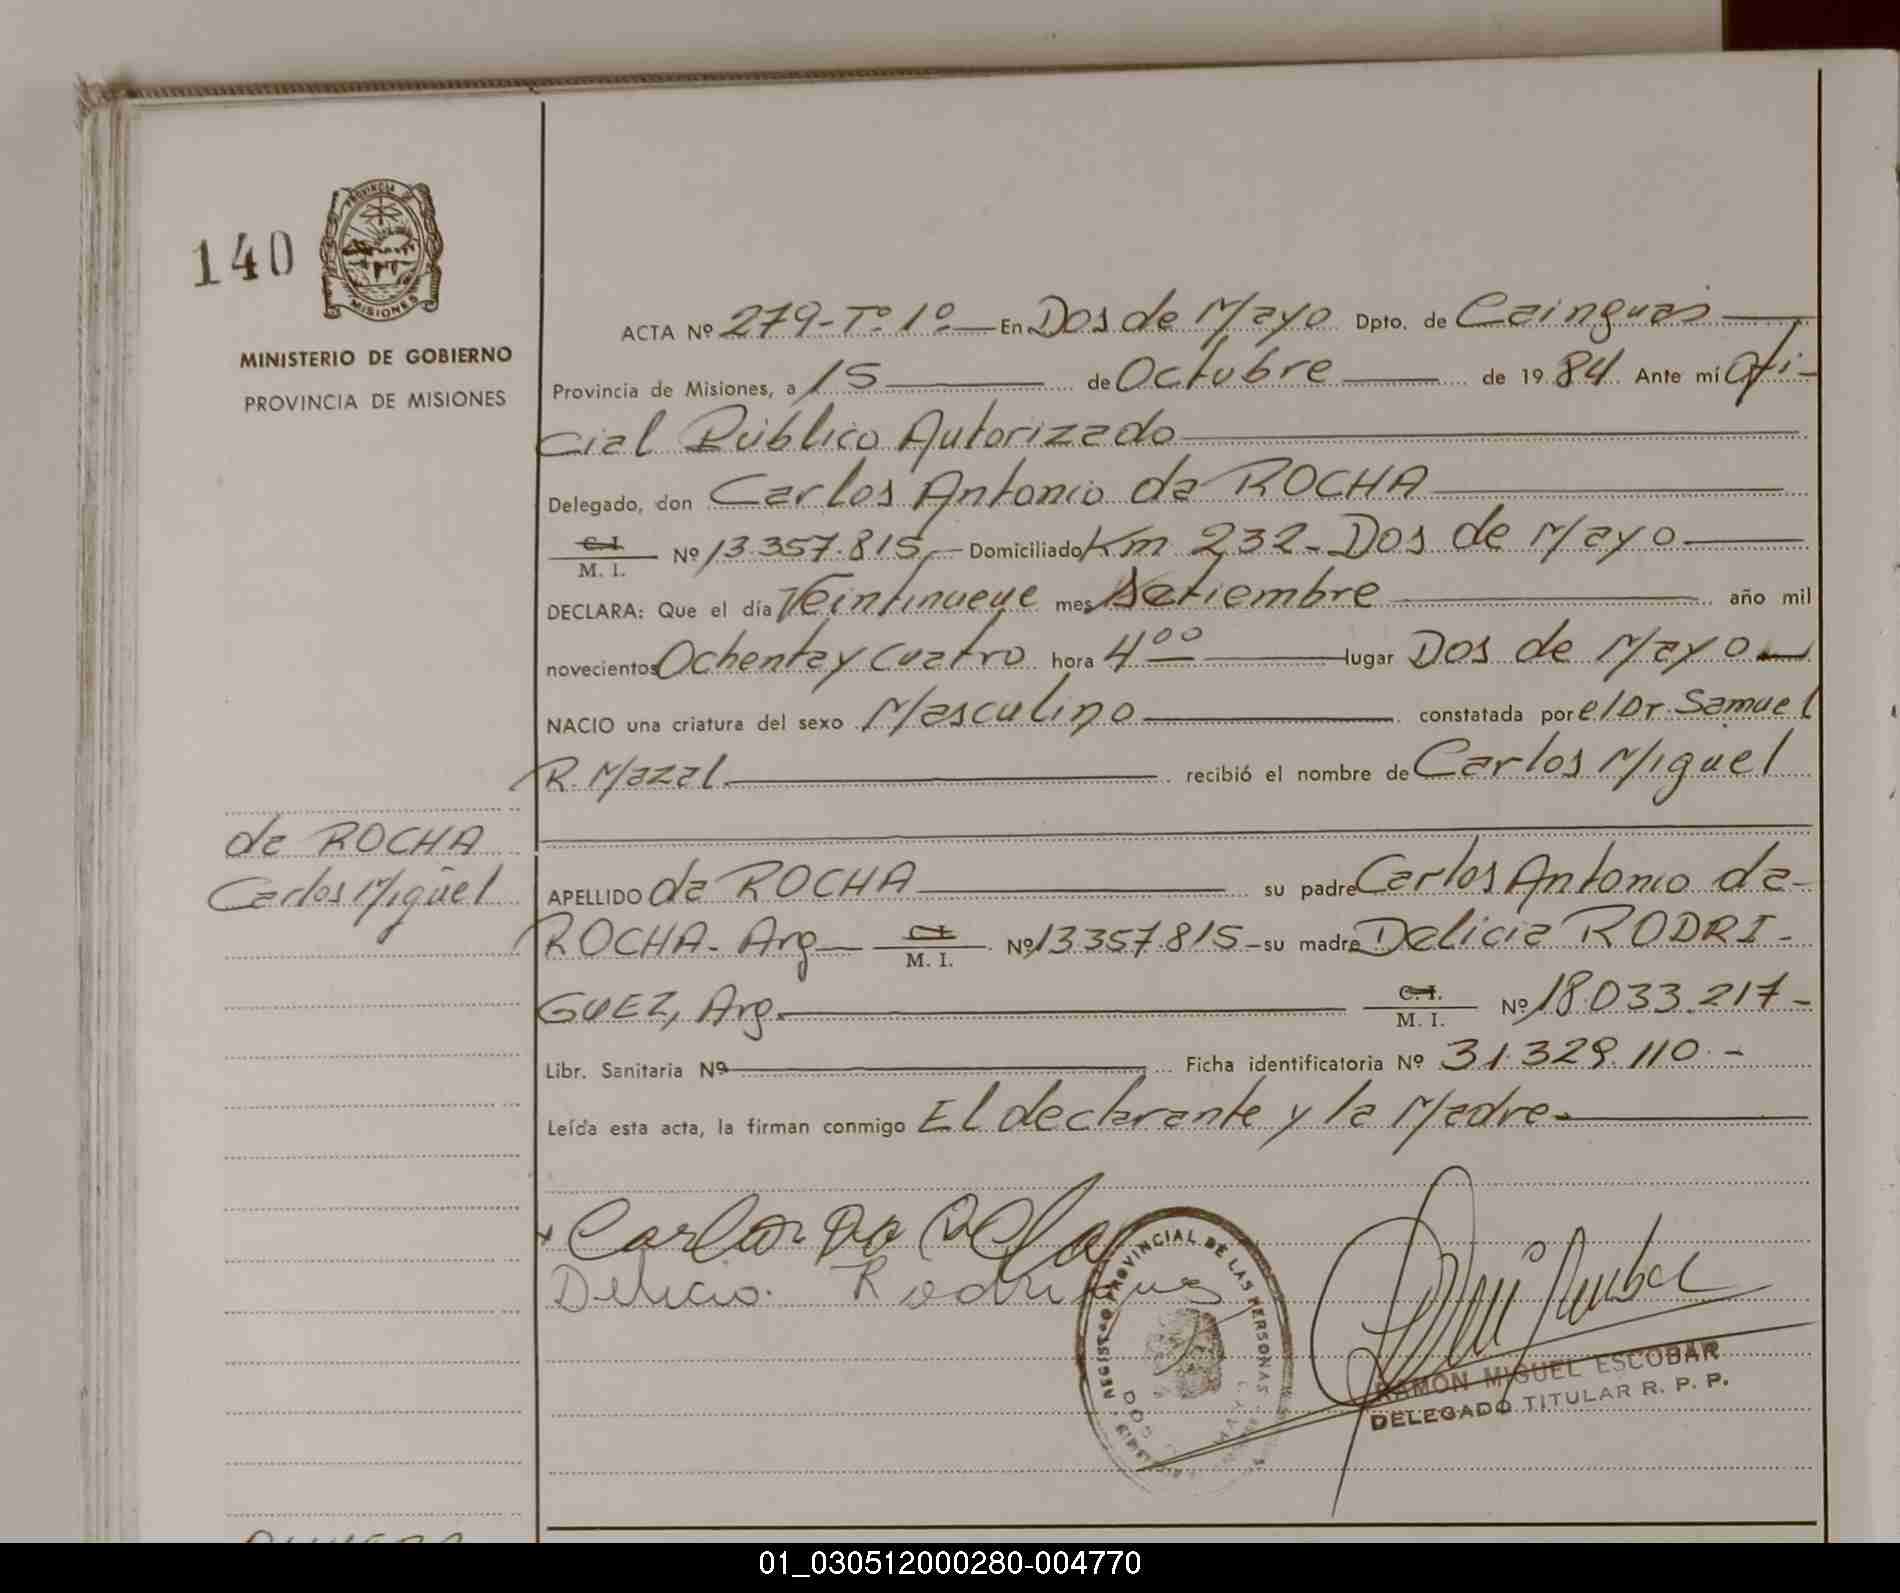 140
PROVINCIA DE
MISIONES
MINISTERIO DE GOBIERNO
PROVINCIA DE MISIONES
ACTA Nº 279-Tº 1º.— En Dos de Mayo Dpto. de Cainguás —
Provincia de Misiones, a 15 — de Octubre — de 19 84 Ante mí Ofi-
cial Público Autorizado —
Delegado, don Carlos Antonio da ROCHA —
C.I. M. I. Nº 13.357.815,— Domiciliado Km 232- Dos de Mayo —
DECLARA: Que el día Veintinueve mes Setiembre — año mil
novecientos Ochenta y Cuatro hora 4⁰⁰ — lugar Dos de Mayo —
NACIO una criatura del sexo Masculino — constatada por el Dr Samuel
R. Mazal — recibió el nombre de Carlos Miguel
da ROCHA
Carlos Miguel
APELLIDO da ROCHA — su padre Carlos Antonio da-
ROCHA- Arg — C.I. M. I. Nº 13357.815 - su madre Delicia RODRI-
GUEZ, Arg. — C.I. M. I. Nº 18.033.217-
Libr. Sanitaria Nº — Ficha identificatoria Nº 31.329.110.-
Leída esta acta, la firman conmigo El declarante y la Madre. —
Delicia Rodriguez
REGISTRO PROVINCIAL DE LAS PERSONAS
DOS
RAMÓN MIGUEL ESCOBAR
DELEGADO TITULAR R. P. P.
01_030512000280-004770